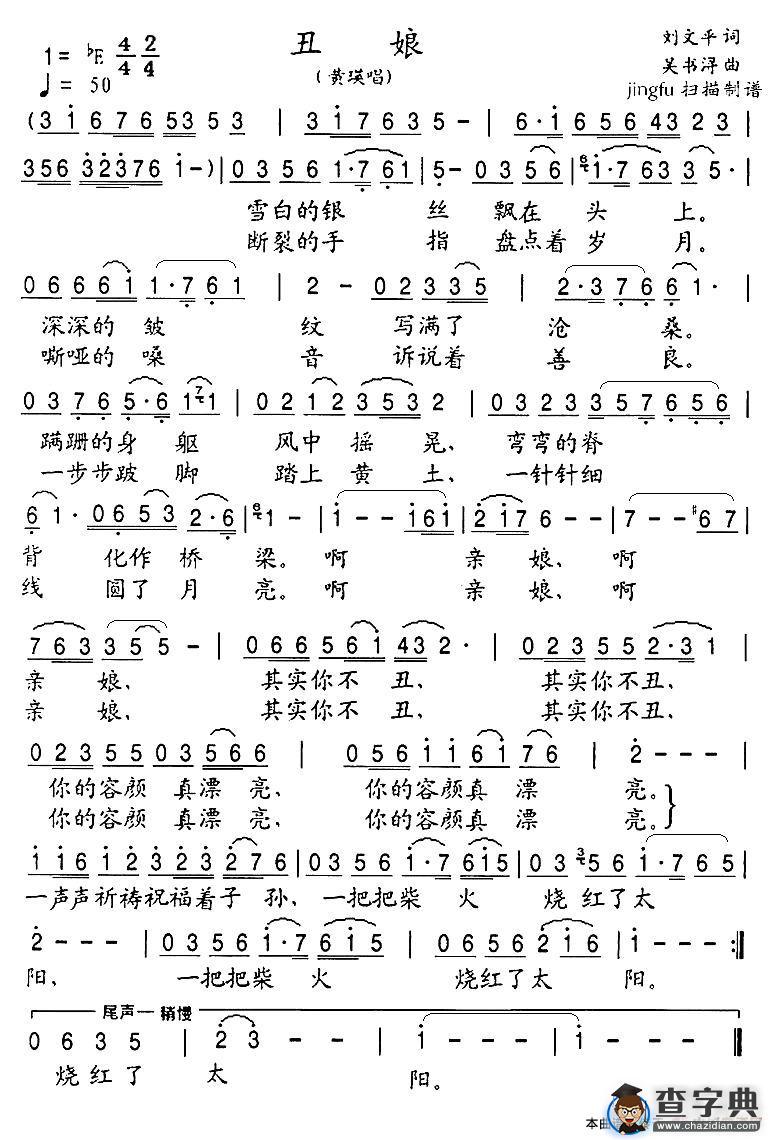 丑 娘
1= ♭E 4/4 2/4
♩= 50
(黄瑛唱)
刘文平 词
吴书浔 曲
jingfu 扫描制谱
(3 1 6 7 6 5 3 5 3 | 3 1 7 6 5 - | 6·1 6 5 6 4 3 2 3 |
3 5 6 3 2 3 7 6 1 -) | 0 3 5 6 1·7 6 1 | 5 - 0 3 5 6 | 1·7 6 3 3 5· |
雪白的银 丝 飘在 头 上。
断裂的手 指 盘点着岁 月。
0 6 6 6 1 1·7 6 1 | 2 - 0 2 3 3 5 | 2·3 7 6 1· |
深深的 皱 纹 写满了 沧 桑。
嘶哑的 嗓 音 诉说着 善 良。
0 3 7 6 5·6 1 1 | 0 2 1 2 3 5 3 2 | 0 3 2 3 3 5 7 6 5 6 |
蹒跚的身 躯 风中 摇 晃、 弯弯的脊
一步步跛 脚 踏上 黄 土、 一针针细
6 1· 0 6 5 3 2·6 | 1 - | 1 - - 1 6 1 | 2 1 7 6 - - | 7 - - #6 7 |
背 化作 桥 梁。啊 亲 娘、 啊
线 圆了 月 亮。啊 亲 娘、 啊
7 6 3 3 5 5 - | 0 6 6 5 6 1 4 3 2· | 0 2 3 5 5 2·3 1 |
亲 娘、 其实你不 丑、 其实你不丑、
亲 娘、 其实你不 丑、 其实你不丑、
0 2 3 5 5 0 3 5 6 6 | 0 5 6 1 1 6 1 7 6 | 2 - - - |
你的容颜 真漂 亮、 你的容颜真 漂 亮。
你的容颜 真漂 亮、 你的容颜真 漂 亮。
1 1 6 1 2 3 2 3 2 3 7 6 | 0 3 5 6 1·7 6 1 5 | 0 3 5 6 1·7 6 5 |
一声声祈祷祝福着子 孙、一把把柴 火 烧红了太
2 - - - | 0 3 5 6 1·7 6 1 5 | 0 6 5 6 2 1 6 | 1 - - - :‖
阳、 一把把柴 火 烧红了太 阳。
尾声—稍慢
0 6 3 5 | 2 3 - - | 1 - - - | 1 - - - ‖
烧红了 太 阳。
查字典
www.chazidian.com